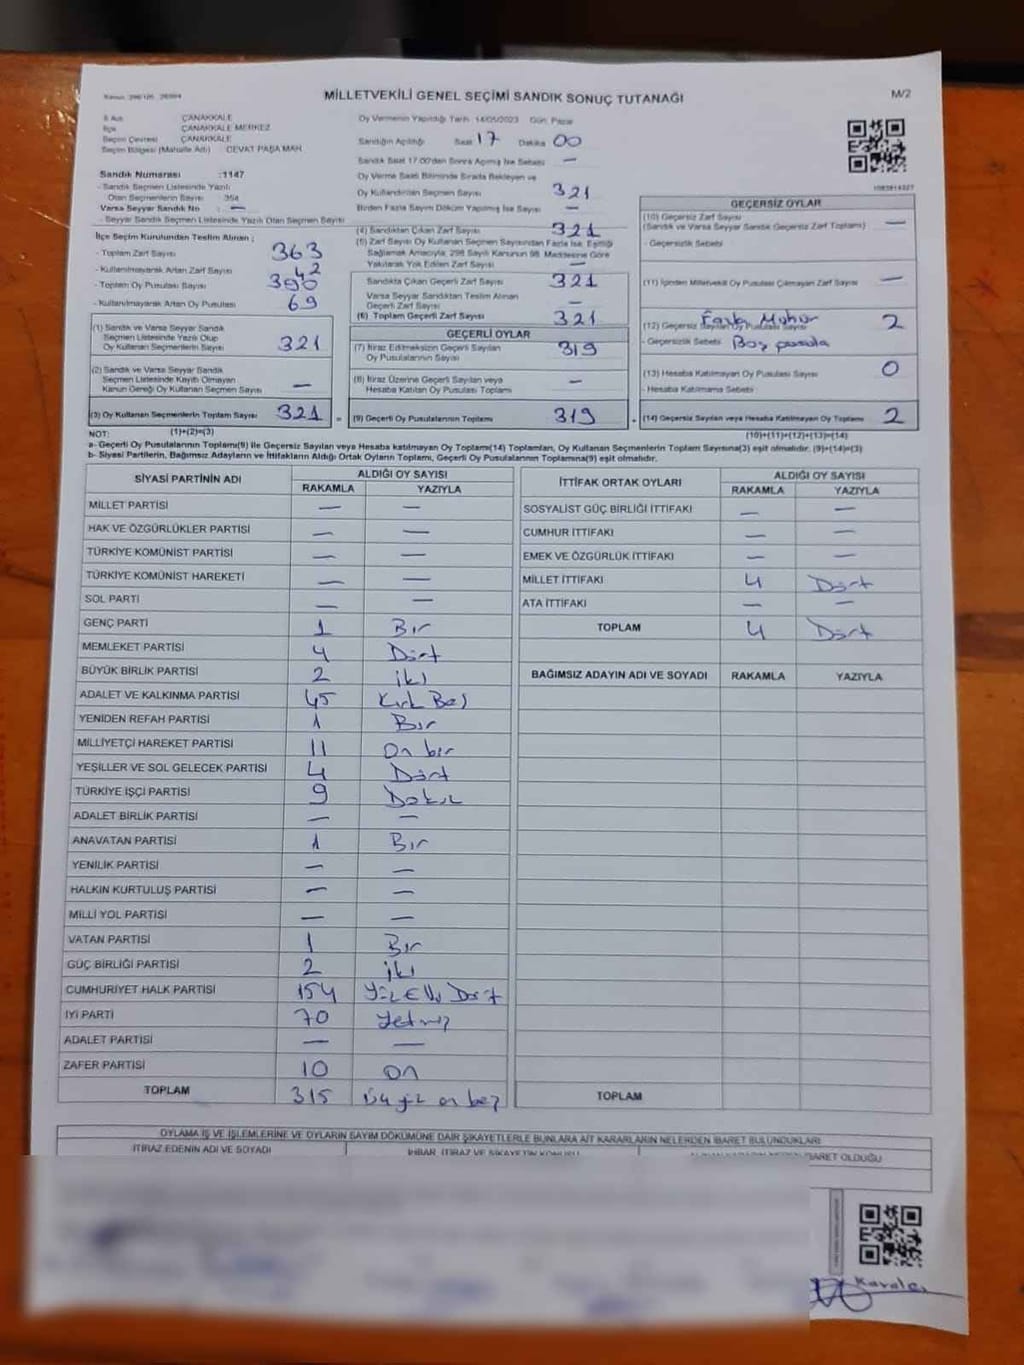 MİLLETVEKİLİ GENEL SEÇİMİ SANDIK SONUÇ TUTANAĞI
M/2
İl Adı ÇANAKKALE
İlçe ÇANAKKALE MERKEZ
Seçim Çevresi ÇANAKKALE
Seçim Bölgesi (Mahalle Adı) : CEVAT PAŞA MAH.
Sandık Numarası :1147
- Sandık Seçmen Listesinde Yazılı
Olan Seçmenlerin Sayısı 354
Varsa Seyyar Sandık No : —
- Seyyar Sandık Seçmen Listesinde Yazılı Olan Seçmen Sayısı
Oy Vermenin Yapıldığı Tarih 14/05/2023 Gün: Pazar
Sandığın Açıldığı Saat 17 Dakika 00
Sandık Saat 17.00'den Sonra Açılmış İse Sebebi —
Oy Verme Saati Bitiminde Sırada Bekleyen ve
Oy Kullandırılan Seçmen Sayısı 321
Birden Fazla Sayım Döküm Yapılmış İse Sayısı —
İlçe Seçim Kurulundan Teslim Alınan ;
- Toplam Zarf Sayısı 363
- Kullanılmayarak Artan Zarf Sayısı 42
- Toplam Oy Pusulası Sayısı 390
- Kullanılmayarak Artan Oy Pusulası 69
(1) Sandık ve Varsa Seyyar Sandık
Seçmen Listesinde Yazılı Olup
Oy Kullanan Seçmenlerin Sayısı 321
(2) Sandık ve Varsa Seyyar Sandık
Seçmen Listesinde Kayıtlı Olmayan
Kanun Gereği Oy Kullanan Seçmen Sayısı —
(3) Oy Kullanan Seçmenlerin Toplam Sayısı 321
(1)+(2)=(3)
(4) Sandıktan Çıkan Zarf Sayısı 321
(5) Zarf Sayısı Oy Kullanan Seçmen Sayısından Fazla İse, Eşitliği
Sağlamak Amacıyla, 298 Sayılı Kanunun 98. Maddesine Göre
Yakılarak Yok Edilen Zarf Sayısı —
Sandıkta Çıkan Geçerli Zarf Sayısı 321
Varsa Seyyar Sandıktan Teslim Alınan
Geçerli Zarf Sayısı —
(6) Toplam Geçerli Zarf Sayısı 321
GEÇERLİ OYLAR
(7) İtiraz Edilmeksizin Geçerli Sayılan
Oy Pusulalarının Sayısı 319
(8) İtiraz Üzerine Geçerli Sayılan veya
Hesaba Katılan Oy Pusulası Toplamı —
= (9) Geçerli Oy Pusulalarının Toplamı 319
GEÇERSİZ OYLAR
(10) Geçersiz Zarf Sayısı
(Sandık ve Varsa Seyyar Sandık Geçersiz Zarf Toplamı) —
- Geçersizlik Sebebi
(11) İçinden Milletvekili Oy Pusulası Çıkmayan Zarf Sayısı —
(12) Geçersiz Sayılan Oy Pusulası Sayısı Fazla Mühür 2
- Geçersizlik Sebebi Boş pusula
(13) Hesaba Katılmayan Oy Pusulası Sayısı 0
- Hesaba Katılmama Sebebi
+ (14) Geçersiz Sayılan veya Hesaba Katılmayan Oy Toplamı 2
(10)+(11)+(12)+(13)=(14)
NOT:
a- Geçerli Oy Pusulalarının Toplamı(9) ile Geçersiz Sayılan veya Hesaba katılmayan Oy Toplamı(14) Toplamları, Oy Kullanan Seçmenlerin Toplam Sayısına(3) eşit olmalıdır. (9)+(14)=(3)
b- Siyasi Partilerin, Bağımsız Adayların ve İttifakların Aldığı Ortak Oyların Toplamı, Geçerli Oy Pusulalarının Toplamına(9) eşit olmalıdır.
SİYASİ PARTİNİN ADI ALDIĞI OY SAYISI
RAKAMLA YAZIYLA
MİLLET PARTİSİ — —
HAK VE ÖZGÜRLÜKLER PARTİSİ — —
TÜRKİYE KOMÜNİST PARTİSİ — —
TÜRKİYE KOMÜNİST HAREKETİ — —
SOL PARTİ — —
GENÇ PARTİ 1 Bir
MEMLEKET PARTİSİ 4 Dört
BÜYÜK BİRLİK PARTİSİ 2 iki
ADALET VE KALKINMA PARTİSİ 45 Kırk Beş
YENİDEN REFAH PARTİSİ 1 Bir
MİLLİYETÇİ HAREKET PARTİSİ 11 On bir
YEŞİLLER VE SOL GELECEK PARTİSİ 4 Dört
TÜRKİYE İŞÇİ PARTİSİ 9 Dokuz
ADALET BİRLİK PARTİSİ — —
ANAVATAN PARTİSİ 1 Bir
YENİLİK PARTİSİ — —
HALKIN KURTULUŞ PARTİSİ — —
MİLLİ YOL PARTİSİ — —
VATAN PARTİSİ 1 Bir
GÜÇ BİRLİĞİ PARTİSİ 2 iki
CUMHURİYET HALK PARTİSİ 154 Yüz Elli Dört
İYİ PARTİ 70 Yetmiş
ADALET PARTİSİ — —
ZAFER PARTİSİ 10 On
TOPLAM 315 Üç yüz on beş
İTTİFAK ORTAK OYLARI ALDIĞI OY SAYISI
RAKAMLA YAZIYLA
SOSYALİST GÜÇ BİRLİĞİ İTTİFAKI — —
CUMHUR İTTİFAKI — —
EMEK VE ÖZGÜRLÜK İTTİFAKI — —
MİLLET İTTİFAKI 4 Dört
ATA İTTİFAKI — —
TOPLAM 4 Dört
BAĞIMSIZ ADAYIN ADI VE SOYADI RAKAMLA YAZIYLA
TOPLAM
OYLAMA İŞ VE İŞLEMLERİNE VE OYLARIN SAYIM DÖKÜMÜNE DAİR ŞİKAYETLERLE BUNLARA AİT KARARLARIN NELERDEN İBARET BULUNDUKLARI
İTİRAZ EDENİN ADI VE SOYADI İHBAR, İTİRAZ VE ŞİKAYETİN KONUSU İBARET OLDUĞU